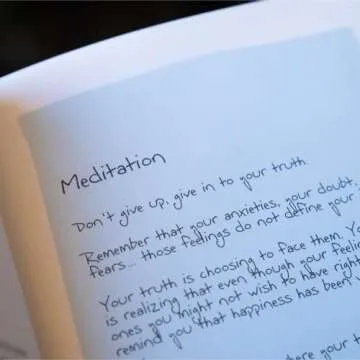 Meditation
Don't give up, give in to your truth.
Remember that your anxieties, your doubt,
fears... those feelings do not define your
Your truth is choosing to face them. Yo
is realizing that even though your feel
ones you might not wish to have right
remind you that happiness has been
ere your t